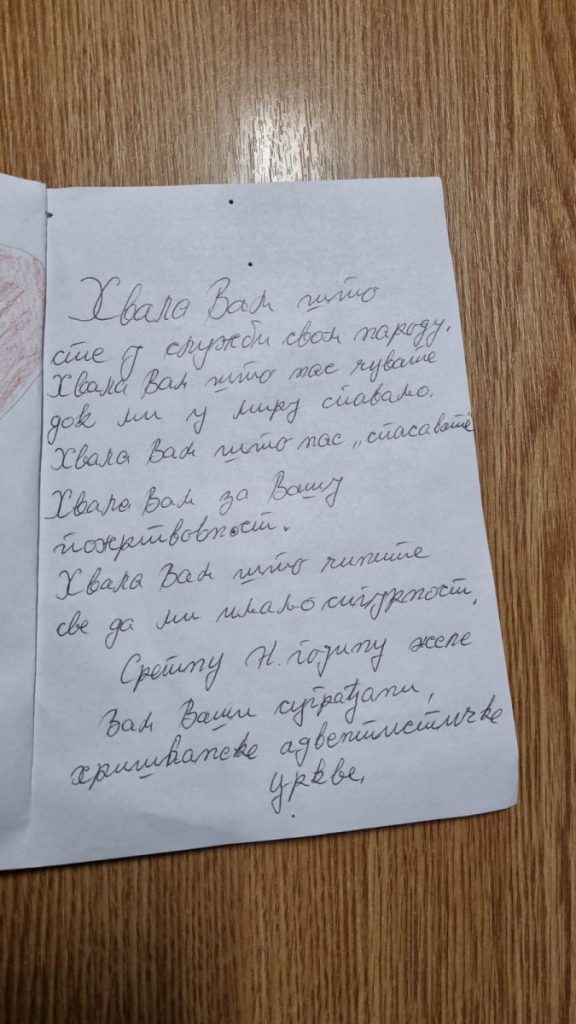 Хвала Вам што
сте у служби свом народу.
Хвала Вам што нас чувате
док ми у миру спавамо.
Хвала Вам што нас „спасавате"
Хвала Вам за Вашу
пожртвовност.
Хвала Вам што чините
све да ми имамо сигурност.
Срећну Н. годину желе
Вам Ваши суграђани,
хришћанске адвентистичке
цркве.